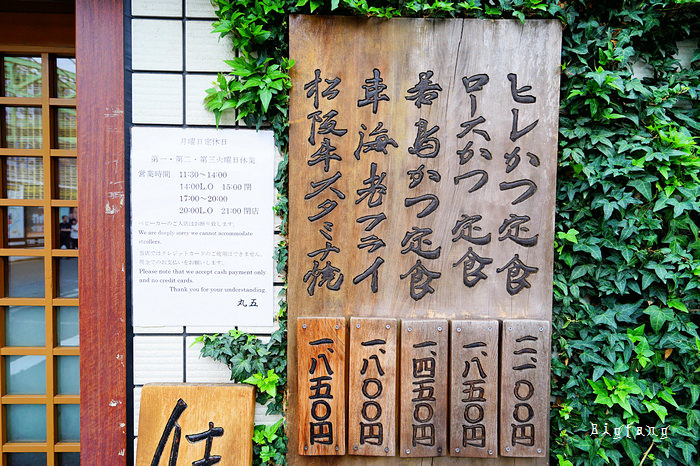 ヒレかつ定食
ロースかつ定食
若鳥かつ定食
車海老フライ
松阪牛スタミナ焼
二、一〇〇円
一、八五〇円
一、四五〇円
一、八〇〇円
一、八五〇円
月曜日定休日
第一・第二・第三火曜日休業
営業時間 11:30～14:00
14:00L.O 15:00閉
17:00～20:00
20:00L.O 21:00閉店
ベビーカーのご入店はお断り致します。
We are deeply sorry we cannot accommodate
strollers.
当店ではクレジットカードのご使用はできません。
現金でのお支払いをお願いします。
Please note that we accept cash payment only
and no credit cards.
Thank you for your understanding.
丸五
Bigfang